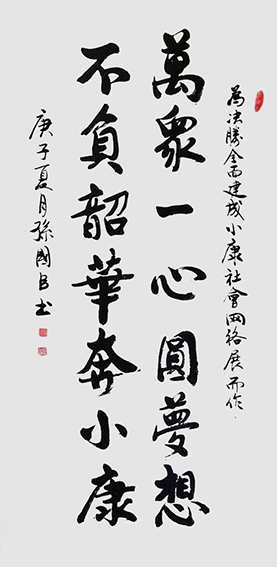 為决勝全面建成小康社會网络展而作
萬眾一心圓夢想
不負韶華奔小康
庚子夏月孫國良书